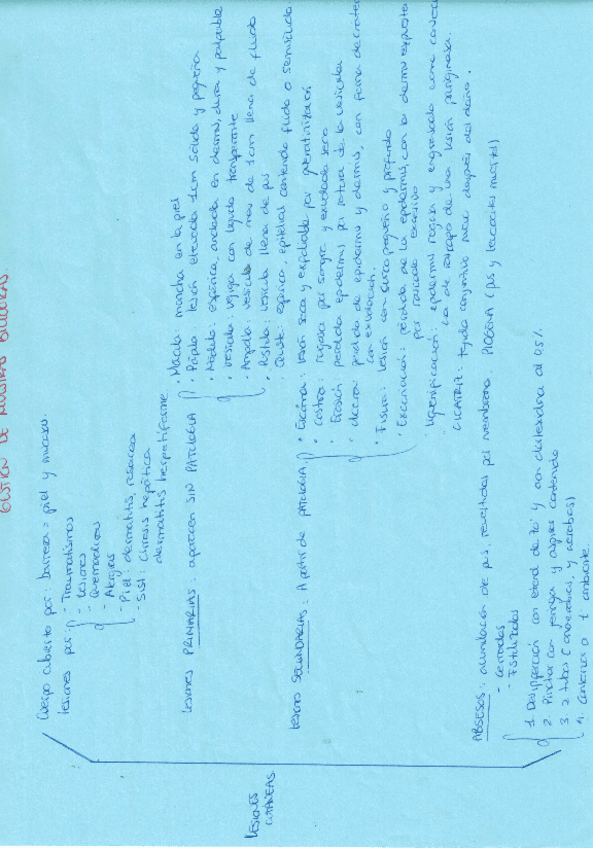 GESTIÓN DE MUESTRAS BIOLÓGICAS
LESIONES CUTÁNEAS
Cuerpo cubierto por: barreras = piel y mucosas.
Lesiones por:
- Traumatismos
- Lesiones
- Quemaduras
- Alergias
- Piel: dermatitis, rosacea
- Sist: Cirrosis hepática
dermatitis herpetiforme
Lesiones PRIMARIAS: aparecen SIN PATOLOGIA
· Mácula: mancha en la piel
· Pápula: lesión elevada 1cm sólida y pequeña
· Nódulo: esférica, anclada en dermis, dura y palpable
· Vesícula: vejiga con líquido transparente
· Ampolla: vesícula de más de 1cm llena de fluido
· Pústula: vesícula llena de pus
· Quiste: esférica, epitelial contenido fluido o semisólido
Lesiones SECUNDARIAS: A partir de PATOLOGIA
· Escama: lesión seca y exfoliable por queratinización
· Costra: rugosa por sangre y exudado seco
· Erosión: perdida epidermis por rotura de la vesícula
· Úlcera: perdida de epidermis y dermis, con forma de crater
con exudación.
· Fisura: lesión con surco pequeño y profundo
· Excoriación: pérdida de la epidermis, con la dermis expuesta
por rascado excesivo
· Liquenificación: epidermis rugosa y engrosada como
de rascado de una lesión pruriginosa.
CICATRIZ: tejido conjuntivo nuevo después del daño.
ABSESOS: acumulación de pus, revestidas por membrana. PIÓGENA (pus y leucocitos muertos)
- Cerrados
- Fistulizados
1. Desinfección con etanol de 70° y con clorhexidina al 0,5%.
2. Pinchar con jeringa y aspirar contenido
3. 2 tubos (anaerobios, y aerobios)
4. Conservar a T° ambiente